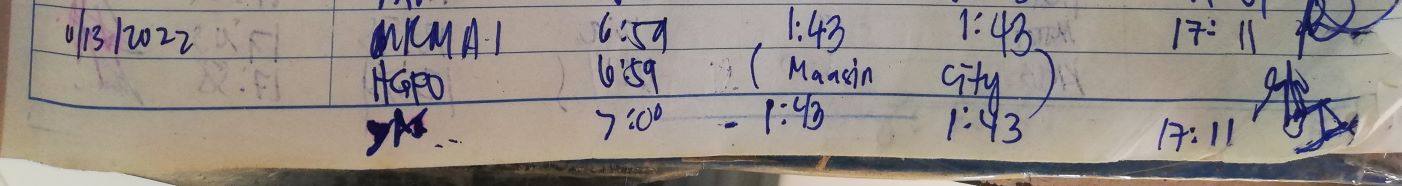 6/13/2022 6:59 1:43 1:43 17:11
HGFO 6:59 (Maasin City)
7:00 - 1:43 1:43 17:11